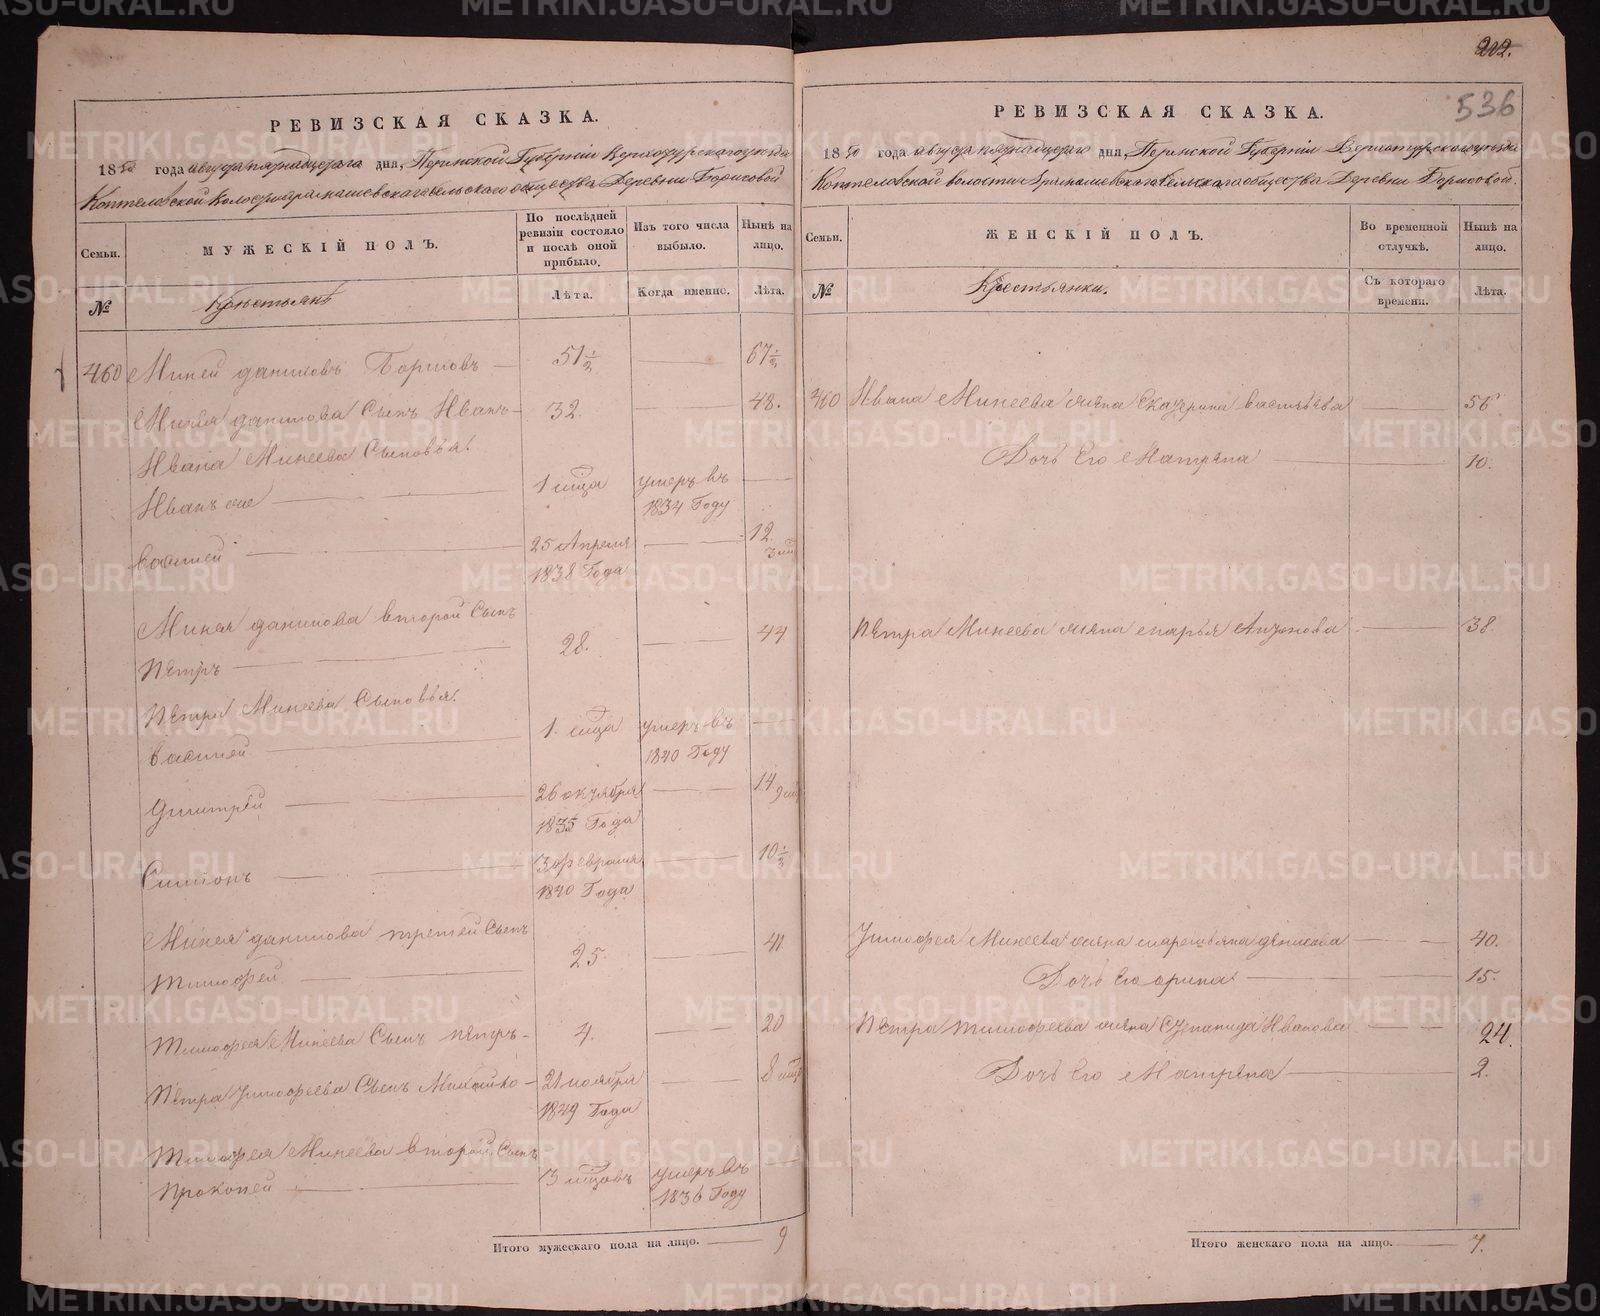 202.
536
РЕВИЗСКАЯ СКАЗКА.
1850 года августа пятнадцатаго дня, Пермской Губерніи Верхотурскаго уѣзда
Коптеловской волости сельскаго общества Деревни Борисовой
Семьи.
МУЖЕСКІЙ ПОЛЪ.
По послѣдней ревизіи состояло и послѣ оной прибыло.
Изъ того числа выбыло.
Нынѣ на лицо.
№
Крестьянъ
Лѣта.
Когда именно.
Лѣта.
460 Миней даниловъ Борисовъ 51½ 67½
Минея данилова Сынъ Иванъ 32. 48.
Ивана Минеева Сыновья.
Иванъ 1 мца умеръ въ 1834 Году
василей 25 Апреля 1838 Года 12. 3 мц
Минея данилова второй Сынъ
Петръ 28. 44
Петра Минеева Сыновья.
василей 1. мца умеръ въ 1840 Году
Дмитрей 26 октября 1835 Года 14 9 мц
Симионъ 3 февраля 1840 Года 10½
Минея данилова третей Сынъ
Тимофей 25. 41
Тимофея Минеева Сынъ петръ 4. 20
Петра Тимофеева Сынъ Михайло 21 ноября 1849 Года 8 мцв
Тимофея Минеева второй Сынъ
Прокопей 3 мцовъ умеръ въ 1836 Году
Итого мужескаго пола на лицо. 9
РЕВИЗСКАЯ СКАЗКА.
1850 года августа пятнадцатаго дня, Пермской Губерніи Верхотурскаго уѣзда
Коптеловской волости сельскаго общества Деревни Борисовой.
Семьи.
ЖЕНСКІЙ ПОЛЪ.
Во временной отлучкѣ.
Нынѣ на лицо.
№
Крестьянки.
Съ котораго времени.
Лѣта.
460 Ивана Минеева жена Екатерина васильева 56
Дочь Его Матрена 10.
Петра Минеева жена марья Антонова 38.
Тимофея Минеева жена маремьяна денисова 40.
Дочь Его орина 15.
Петра тимофеева жена Степанида Иванова 24.
Дочь Его Матрена 2.
Итого женскаго пола на лицо. 7.
METRIKI.GASO-URAL.RU